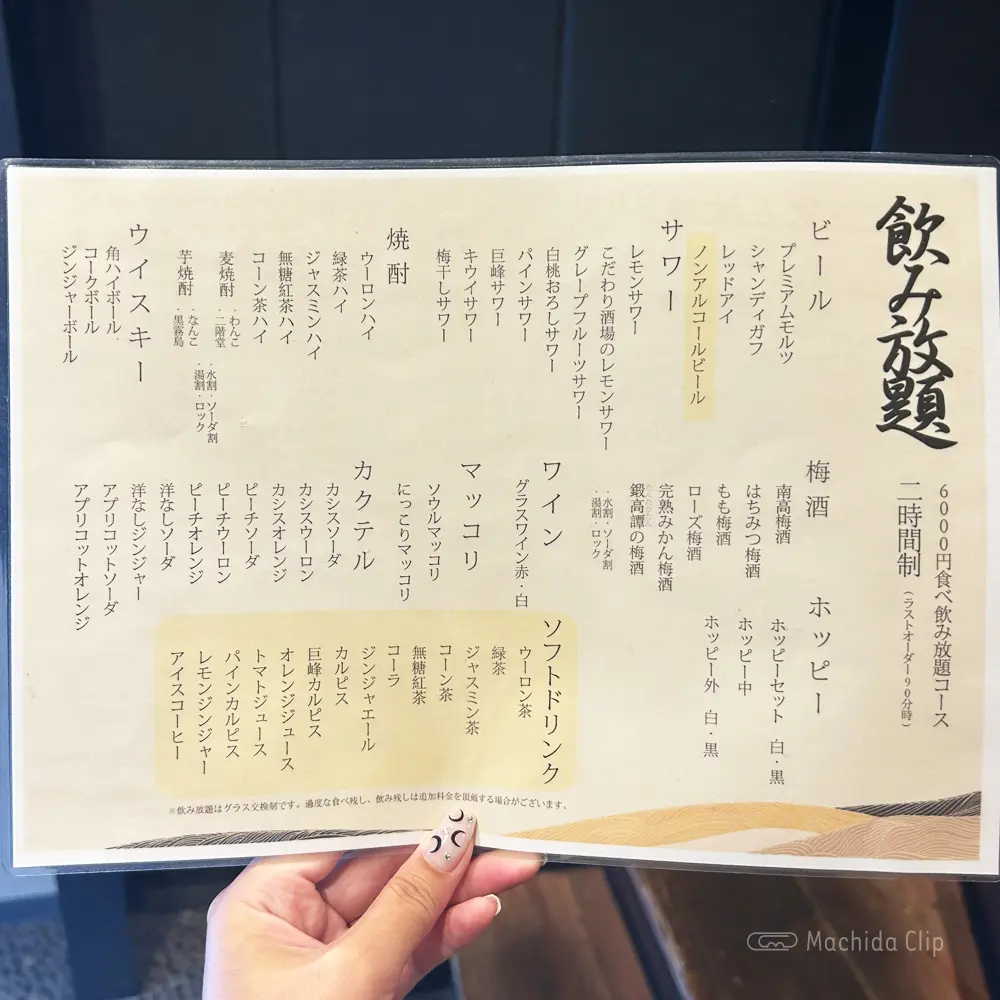 飲み放題
6000円食べ飲み放題コース
二時間制
(ラストオーダー90分時)
ビール
プレミアムモルツ
シャンディガフ
レッドアイ
ノンアルコールビール
サワー
レモンサワー
こだわり酒場のレモンサワー
グレープフルーツサワー
白桃おろしサワー
パインサワー
巨峰サワー
キウイサワー
梅干しサワー
焼酎
ウーロンハイ
緑茶ハイ
ジャスミンハイ
無糖紅茶ハイ
コーン茶ハイ
麦焼酎
・わんこ
・二階堂
芋焼酎
・なんこ
・黒霧島
・水割・ソーダ割
・湯割・ロック
ウイスキー
角ハイボール
コークボール
ジンジャーボール
梅酒
南高梅酒
はちみつ梅酒
もも梅酒
ローズ梅酒
完熟みかん梅酒
鍛高譚の梅酒
たんたかたん
・水割・ソーダ割
・湯割・ロック
ホッピー
ホッピーセット 白・黒
ホッピー中
ホッピー外 白・黒
ワイン
グラスワイン赤・白
マッコリ
ソウルマッコリ
にっこりマッコリ
カクテル
カシスソーダ
カシスウーロン
カシスオレンジ
ピーチソーダ
ピーチウーロン
ピーチオレンジ
洋なしソーダ
洋なしジンジャー
アプリコットソーダ
アプリコットオレンジ
ソフトドリンク
ウーロン茶
緑茶
ジャスミン茶
コーン茶
無糖紅茶
コーラ
ジンジャエール
カルピス
巨峰カルピス
オレンジジュース
トマトジュース
パインカルピス
レモンジンジャー
アイスコーヒー
※飲み放題はグラス交換制です。過度な食べ残し、飲み残しは追加料金を頂戴する場合がございます。
Machida Clip